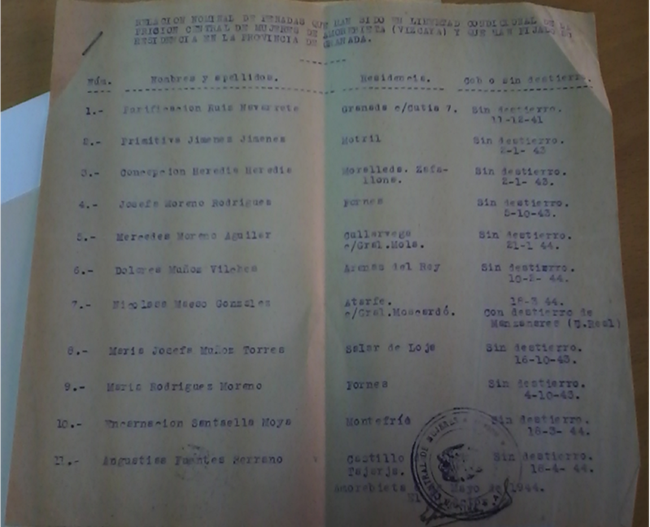 RELACION NOMINAL DE PENADAS QUE HAN SIDO EN LIBERTAD CONDICIONAL DE LA
PRISION CENTRAL DE MUJERES DE AMOREBIETA (VIZCAYA) Y QUE HAN FIJADO SU
RESIDENCIA EN LA PROVINCIA DE GRANADA.
Núm. Nombres y apellidos. Residencia. Con o sin destierro.
1.- Purificacion Ruiz Navarrete Granada c/Cutis 7. Sin destierro.
11-12-41
2.- Primitiva Jimenez Jimenez Motril Sin destierro.
2-1- 43
3.- Concepcion Heredia Heredia Sin destierro.
2-1- 43.
4.- Josefa Moreno Rodriguez Fornes Sin destierro.
5-10-43.
5.- Mercedes Moreno Aguilar Cullarvega Sin destierro.
c/Gral.Mola. 21-1 44.
6.- Dolores Muñoz Vilches Arenas del Rey Sin destierro.
10-2- 44.
7.- Nicolasa Gonzalez Atarfe. 18-3 44.
c/Gral.Moscardó. Con destierro de
Manzanares (C.Real)
8.- Maria Josefa Muñoz Torres Salar de Loja Sin destierro.
16-10-43.
9.- Maria Rodriguez Moreno Fornes Sin destierro.
4-10-43.
10.- Encarnacion Santaella Moya Montefrío Sin destierro.
18-3- 44.
11.- Angustias Fuentes Serrano Castillo Sin destierro.
Tajarja. 18-4- 44.
Amorebieta Mayo de 1944.
CENTRAL DE MUJERES